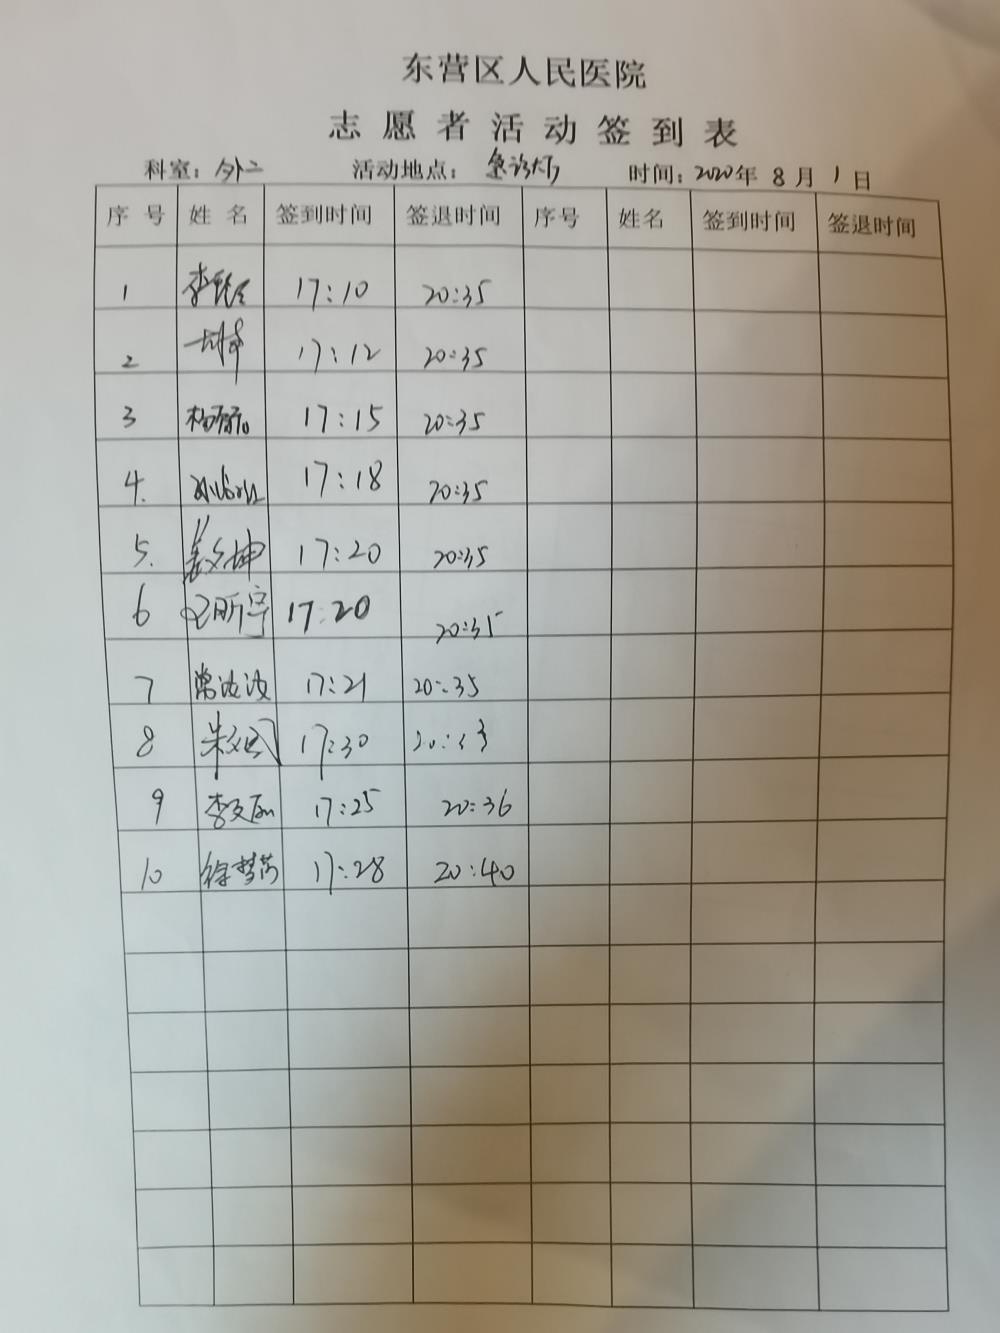 东营区人民医院
志愿者活动签到表
科室：外二 活动地点：急诊大厅 时间：2020年8月1日
序号 姓名 签到时间 签退时间 序号 姓名 签到时间 签退时间
1 17:10 20:35
2 17:12 20:35
3 17:15 20:35
4. 17:18 20:35
5. 17:20 20:35
6 17:20 20:35
7 常波波 17:21 20:35
8 17:30
9 17:25 20:36
10 徐梦芮 17:28 20:40